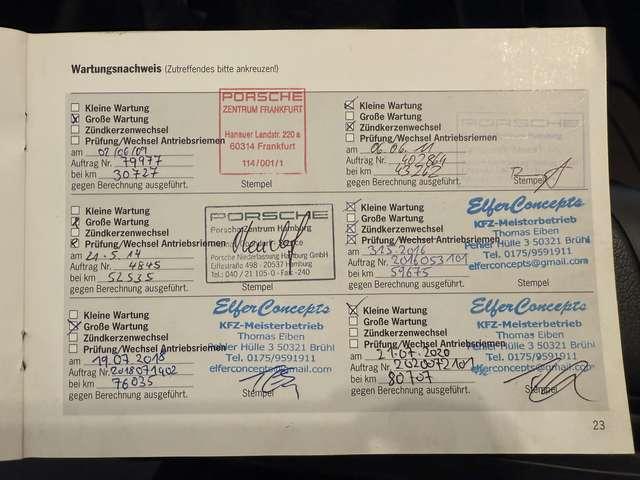 Wartungsnachweis (Zutreffendes bitte ankreuzen!)
Kleine Wartung
Große Wartung
Zündkerzenwechsel
Prüfung/Wechsel Antriebsriemen
am 02/06/09
Auftrag Nr. 79977
bei km 30727
gegen Berechnung ausgeführt.
PORSCHE
ZENTRUM FRANKFURT
Hanauer Landstr. 220 a
60314 Frankfurt
114/001/1
Stempel
Kleine Wartung
Große Wartung
Zündkerzenwechsel
Prüfung/Wechsel Antriebsriemen
am 06.06.11
Auftrag Nr. 402864
bei km 43262
gegen Berechnung ausgeführt.
PORSCHE
Stempel
Kleine Wartung
Große Wartung
Zündkerzenwechsel
Prüfung/Wechsel Antriebsriemen
am 21.5.14
Auftrag Nr. 4845
bei km 52535
gegen Berechnung ausgeführt.
PORSCHE
Porsche Zentrum Hamburg
Porsche Niederlassung Hamburg GmbH
Eiffestraße 498 - 20537 Hamburg
Tel.: 040 / 21 105-0 - Fax: -240
Stempel
Kleine Wartung
Große Wartung
Zündkerzenwechsel
Prüfung/Wechsel Antriebsriemen
am 31.5.2016
Auftrag Nr. 2016053101
bei km 59675
gegen Berechnung ausgeführt.
ElferConcepts
KFZ-Meisterbetrieb
Thomas Eiben
Pehler Hülle 3 50321 Brühl
Tel. 0175/9591911
elferconcepts@gmail.com
Stempel
Kleine Wartung
Große Wartung
Zündkerzenwechsel
Prüfung/Wechsel Antriebsriemen
am 19.07.2018
Auftrag Nr. 2018071902
bei km 76035
gegen Berechnung ausgeführt.
ElferConcepts
KFZ-Meisterbetrieb
Thomas Eiben
Pehler Hülle 3 50321 Brühl
Tel. 0175/9591911
elferconcepts@gmail.com
Stempel
Kleine Wartung
Große Wartung
Zündkerzenwechsel
Prüfung/Wechsel Antriebsriemen
am 21.07.2020
Auftrag Nr. 2020072101
bei km 80707
gegen Berechnung ausgeführt.
ElferConcepts
KFZ-Meisterbetrieb
Thomas Eiben
Pehler Hülle 3 50321 Brühl
Tel. 0175/9591911
elferconcepts@gmail.com
Stempel
23